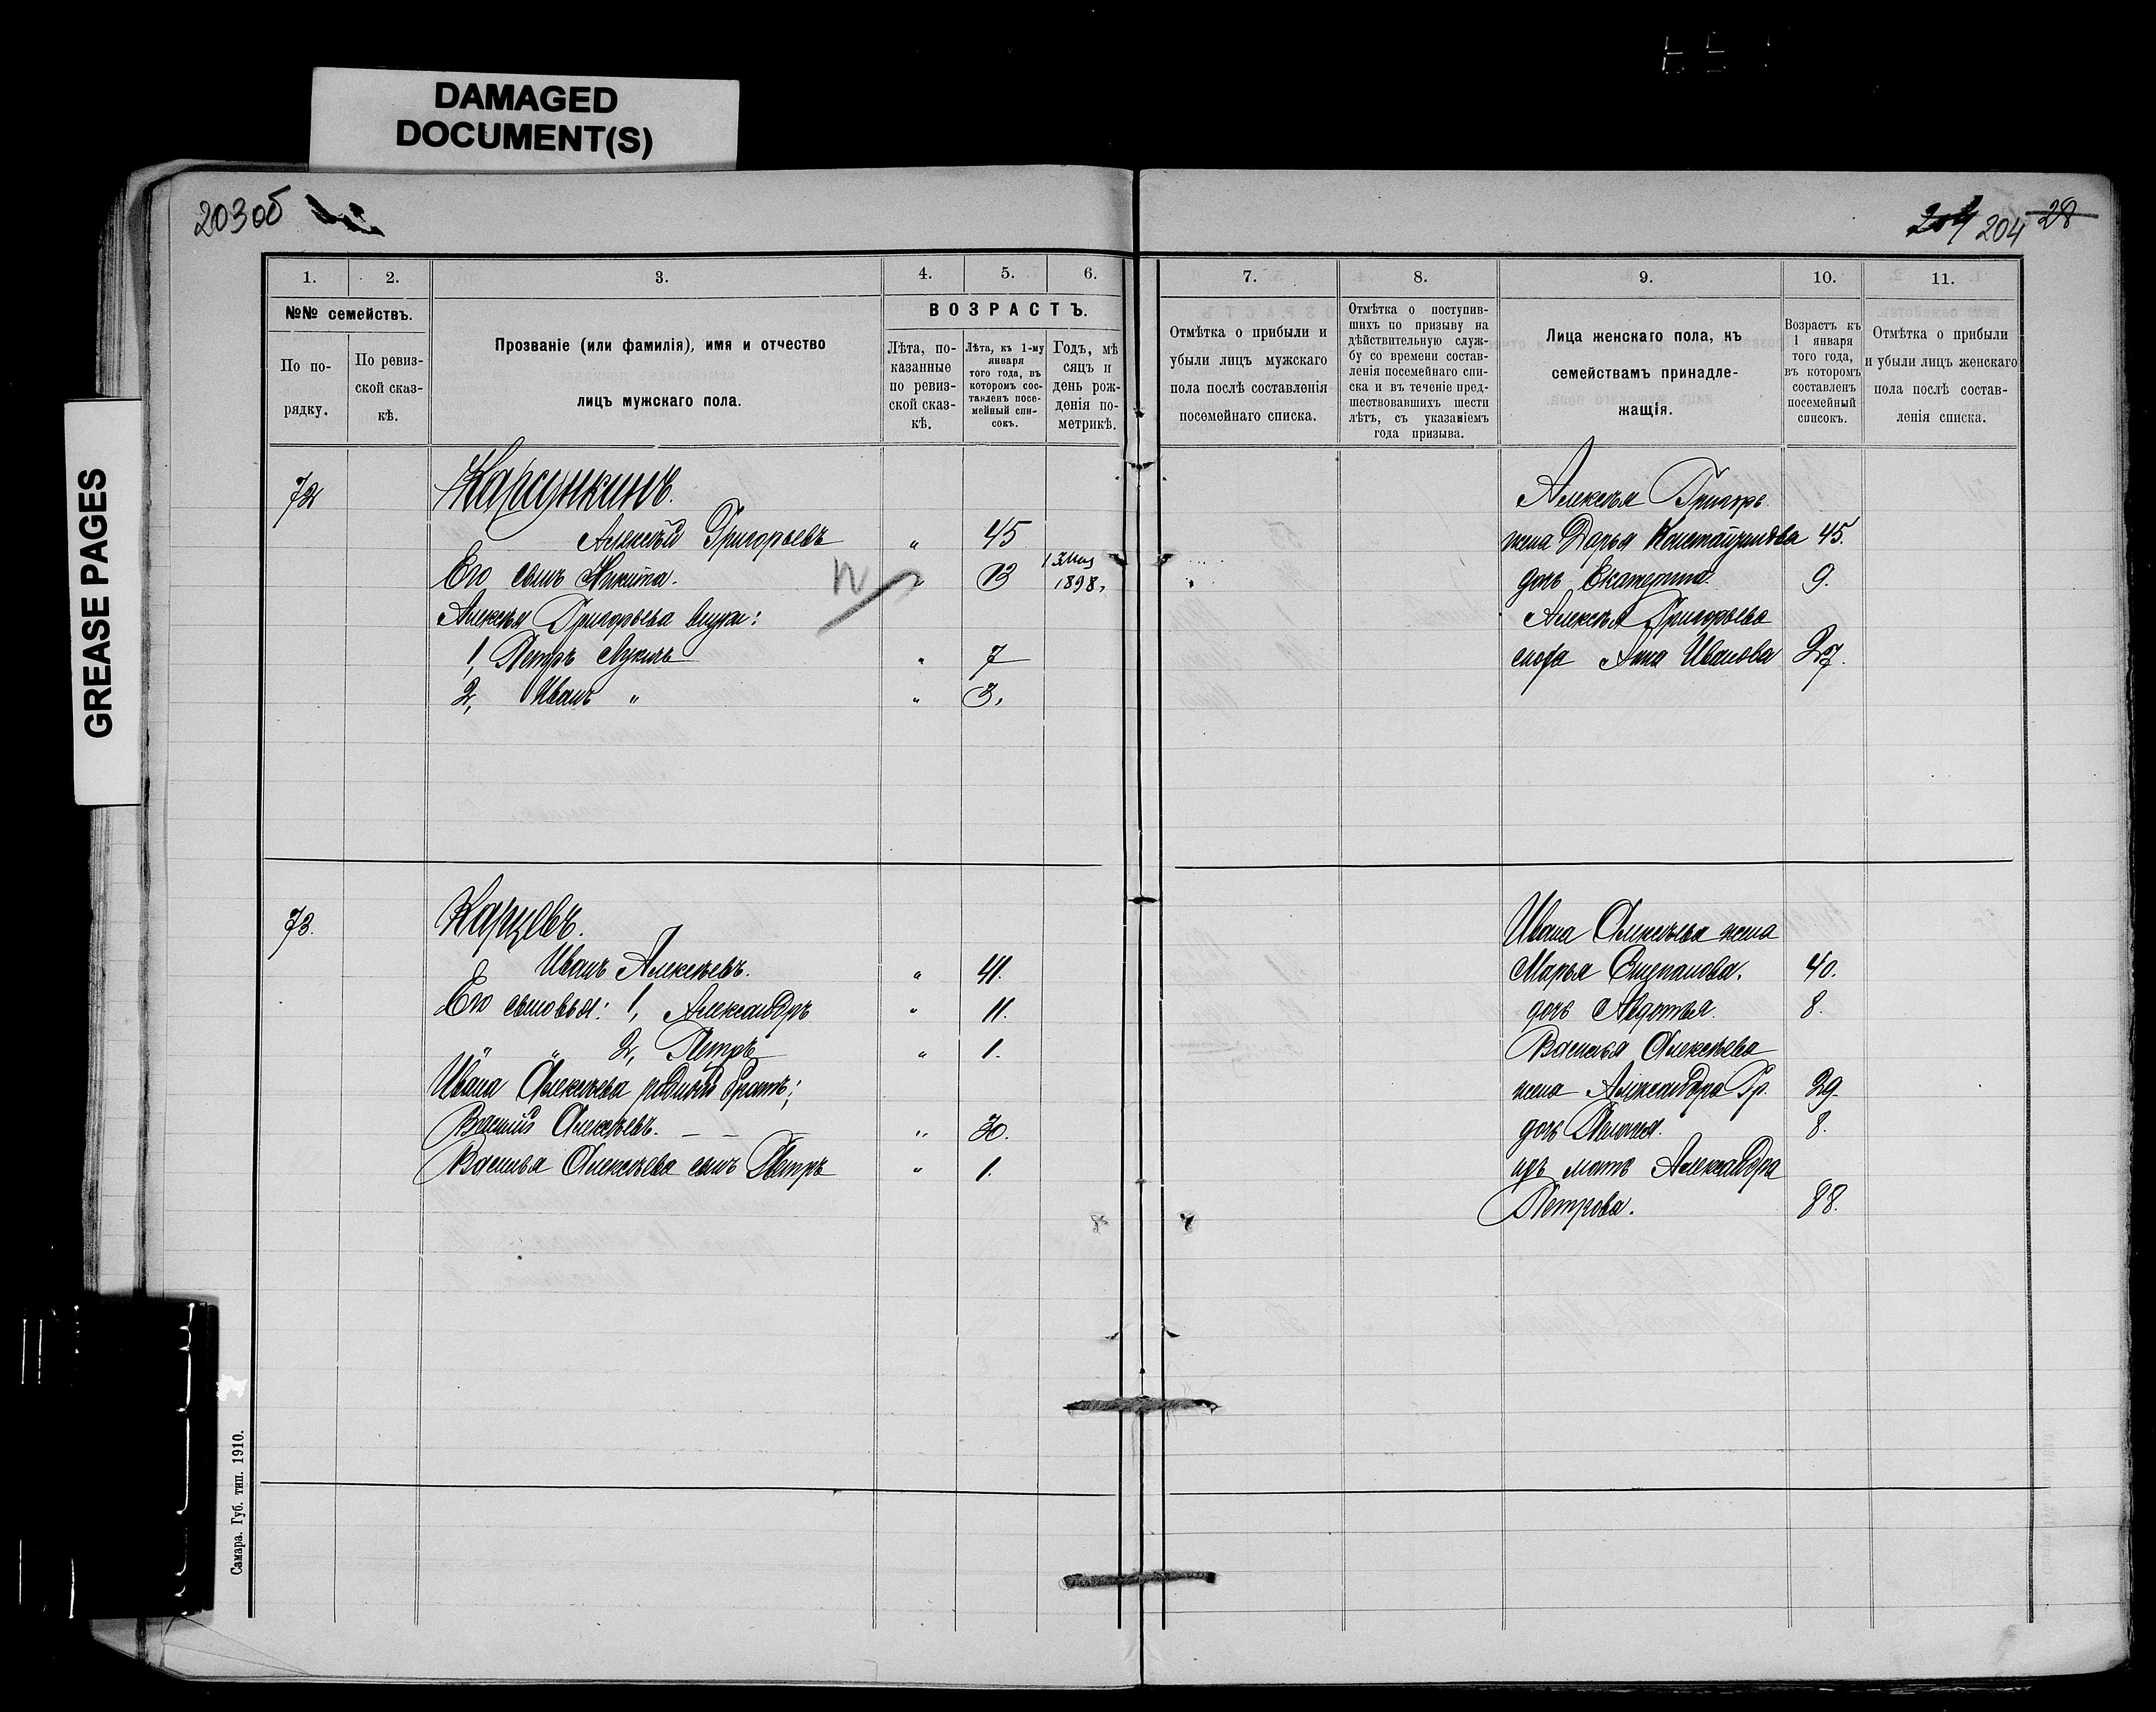 DAMAGED
DOCUMENT(S)
GREASE PAGES
203об
204 28
1.
2.
3.
4.
5.
6.
№№ семействъ.
По по-
рядку.
По ревиз-
ской сказ-
кѣ.
Прозваніе (или фамилія), имя и отчество
лицъ мужскаго пола.
ВОЗРАСТЪ.
Лѣта, по-
казанные
по ревиз-
ской сказ-
кѣ.
Лѣта, къ 1-му
января
того года, въ
которомъ сос-
тавленъ посе-
мейный спи-
сокъ.
Годъ, мѣ
сяцъ и
день рож-
денія по-
метрикѣ.
72
Карсункинъ.
Алексѣй Григорьевъ " 45
Его сынъ Никита. " 13
1898.
Алексѣя Григорьева внуки:
1, Петръ Лукинъ " 7
2, Иванъ " " 3.
73.
Карцевъ.
Иванъ Алексѣевъ. " 41.
Его сыновья: 1, Александръ " 11.
" " 2, Петръ " 1.
Ивана Алексѣева родной братъ:
Василій Алексѣевъ. — — " 30.
Василья Алексѣева сынъ Петръ " 1.
Самара. Губ. тип. 1910.
7.
8.
9.
10.
11.
Отмѣтка о прибыли и
убыли лицъ мужскаго
пола послѣ составленія
посемейнаго списка.
Отмѣтка о поступив-
шихъ по призыву на
дѣйствительную служ-
бу со времени состав-
ленія посемейнаго спи-
ска и въ теченіе пред-
шествовавшихъ шести
лѣтъ, съ указаніемъ
года призыва.
Лица женскаго пола, къ
семействамъ принадле-
жащія.
Возрастъ къ
1 января
того года,
въ которомъ
составленъ
посемейный
списокъ.
Отмѣтка о прибыли
и убыли лицъ женскаго
пола послѣ состав-
ленія списка.
Алексѣя Григор.
жена Дарья Константинова 45.
дочь Екатерина 9.
Алексѣя Григорьева
сноха Анна Иванова 27.
Ивана Алексѣева жена
Марья Степанова. 40.
дочь Авдотья. 8.
Василья Алексѣева
жена Александра Гр. 29.
дочь Пелагея. 8.
ихъ мать Александра
Петрова. 88.